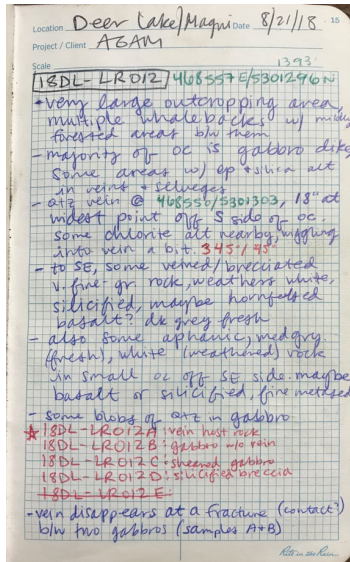 Location Deer Lake/Magni Date 8/21/18 15
Project / Client AGAM
Scale 1393'
18DL-LR012 468557E/5301296N
• very large outcropping area,
multiple whalebacks w/ mildly
forested areas b/w them
- majority of oc is gabbro dike,
some areas w/ ep + silica alt
in veins + selveges
- qtz vein @ 468550/5301303, 18" at
widest point off S side of oc.
some chlorite alt nearby,
into vein a bit. 345°/75°
- to SE, some veined/brecciated
v. fine-gr. rock, weathers white,
silicified, maybe hornfelsed
basalt? dk grey fresh
- also some aphanic, med gry.
(fresh), white (weathered) rock
in small oc off SE side. maybe
basalt or silicified, fine metased
- some blobs of qtz in gabbro
☆ 18DL-LR012A: vein host rock
18DL-LR012B: gabbro w/o vein
18DL-LR012C: sheared gabbro
18DL-LR012D: silicified breccia
18DL-LR012E:
- vein disappears at a fracture (contact?)
b/w two gabbros (samples A+B)
Rite in the Rain